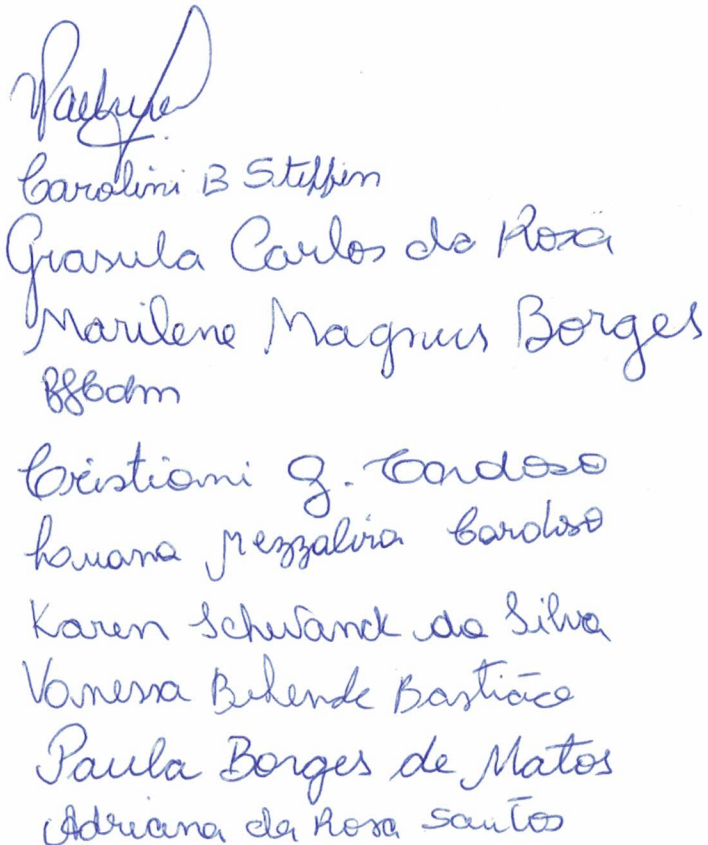 Carolini B Steffen
Grasiela Carlos da Rosa
Marilene Magnus Borges
Cristiani G. Cardoso
Louana Mezzalira Cardoso
Karen Schwanck da Silva
Vanessa Behende Bastião
Paula Borges de Matos
Adriana da Rosa Santos